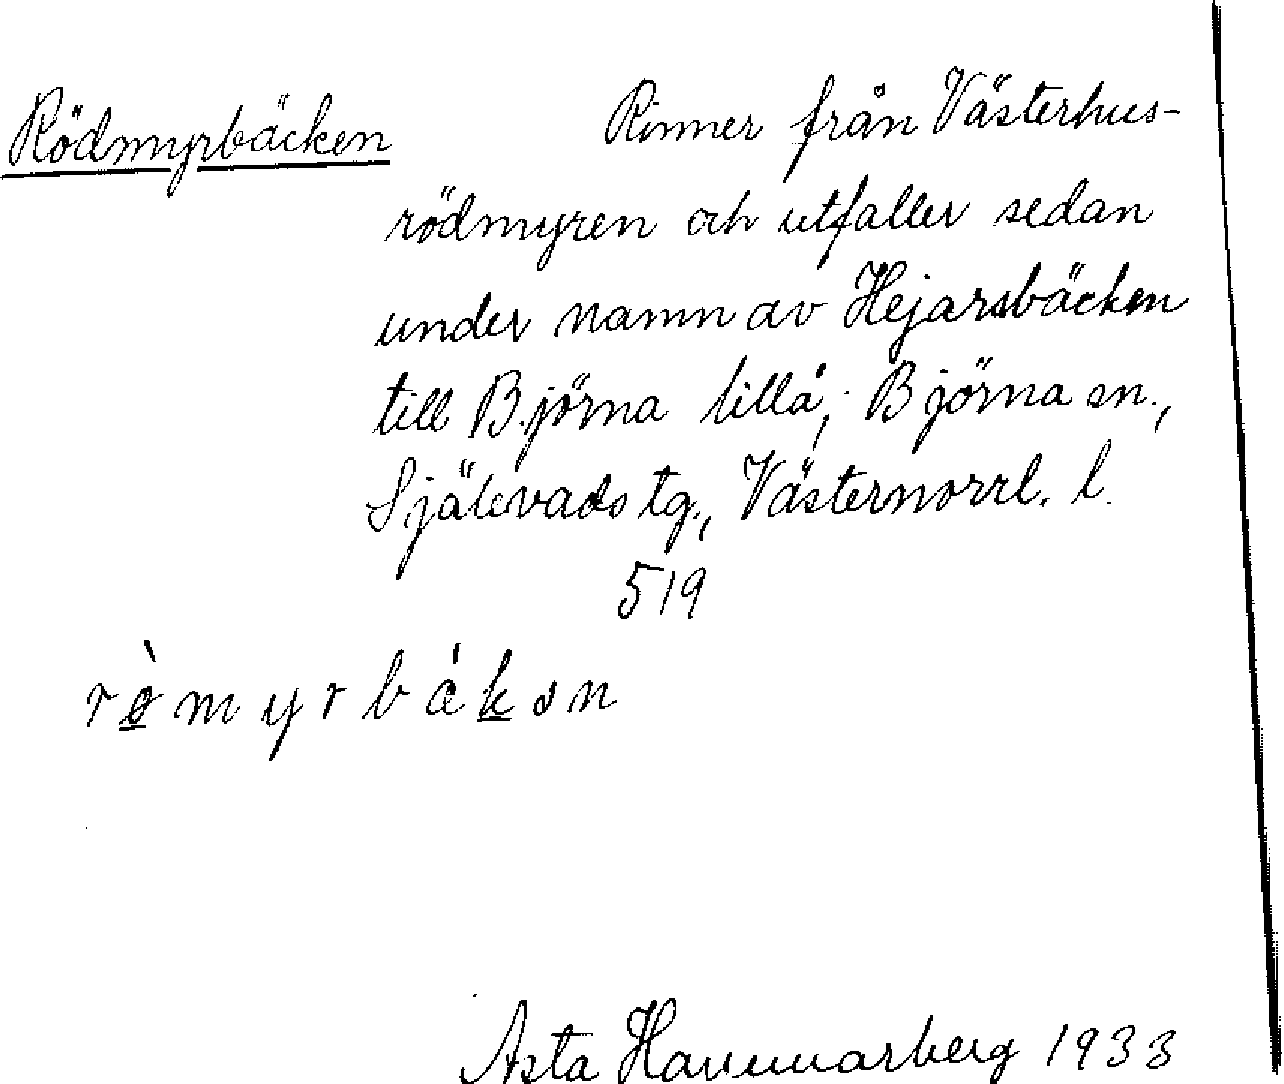 Rödmyrbäcken Rinner från Västerhus-
rödmyren och utfaller sedan
under namn av Hejarsbäcken
till Björna lillå; Björna sn.,
Själevads tg., Västernorrl. l.
519
rø̀myrbákən
Asta Hammarberg 1933